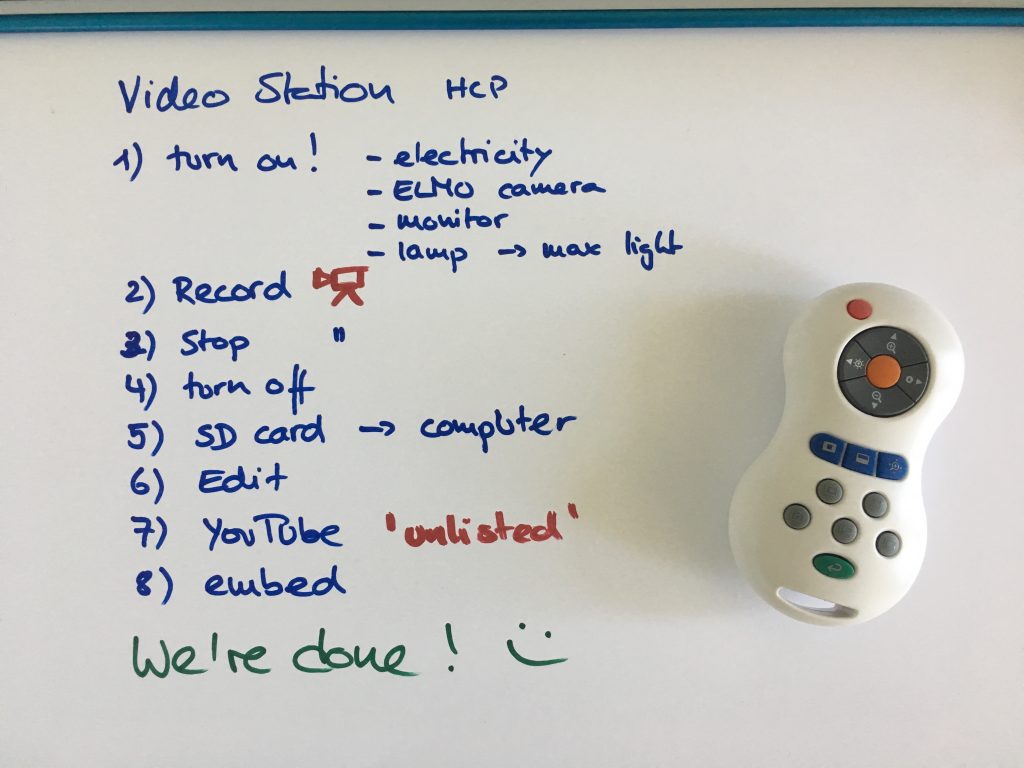 Video Station HCP
1) turn on! - electricity
- ELMO camera
- monitor
- lamp → max light
2) Record
3) Stop "
4) turn off
5) SD card → computer
6) Edit
7) YouTube "unlisted"
8) embed
We're done! :)